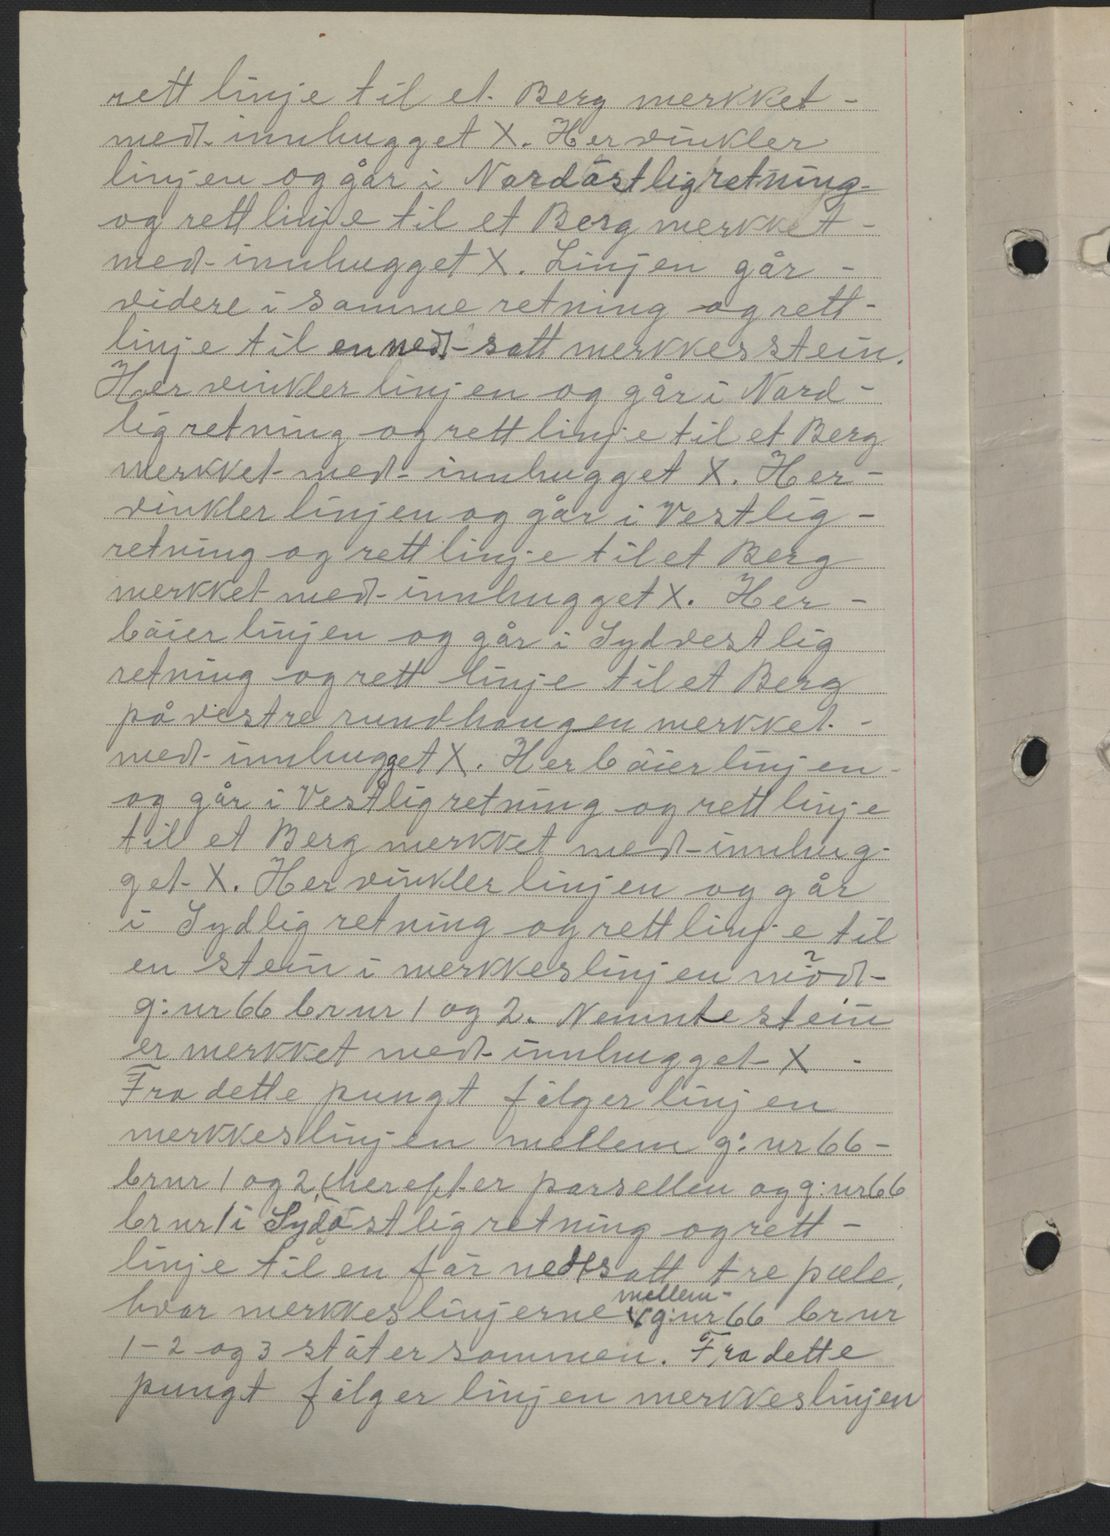 rett linje til et Berg merkket -
med- innhugget X. Her vinkler
linjen og går i Nordöstligretning-
og rett linje til et Berg merkket -
med- innhugget X. Linjen går -
videre i samme retning og rett-
linje til en ned-satt merkkesstein.
Her vinkler linjen og går i Nord-
ligretning og rett linje til et Berg
merkket med- innhugget X. Her-
vinkler linjen og går i Vestlig-
retning og rett linje til et Berg
merkket med- innhugget X. Her-
böier linjen og går i Sydvestlig
retning og rett linje til et Berg
på vestre rundhaugen merkket -
med- innhugget X. Her böier linjen-
og går i Vestligretning og rett linje
til et Berg merkket med- innhug-
get- X. Her vinkler linjen og går
i Sydlig retning og rett linje til
en stein i merkkeslinjen möd-
g:nr 66 brnr 1 og 2. Nemnte stein
er merkket med- innhugget- X -
Fra dette pungt fölger linjen
merkkeslinjen mellem g:nr 66-
brnr 1 og 2, (herefter parsellen og g:nr 66
brnr 1 i Sydöstligretning og rett-
linje til en för nedsatt tre pæle,
hvor merkkeslinjerne mellem- g:nr 66 brnr
1-2 og 3 stöter sammen. Fra dette
pungt fölger linjen merkkeslinjen